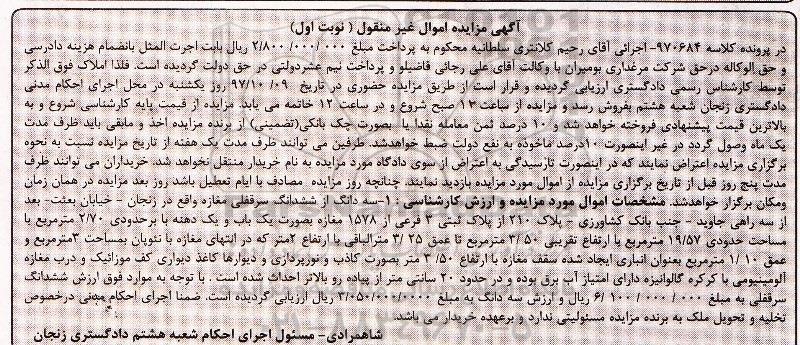 آگهی مزایده اموال غیر منقول ( نوبت اول)
در پرونده کلاسه ۹۷۰۶۸۴- اجرائی آقای رحیم کلانتری سلطانیه محکوم به پرداخت مبلغ ۲/۸۰۰/۰۰۰/۰۰۰ ریال بابت اجرت المثل بانضمام هزینه دادرسی
و حق الوکاله درحق شرکت مرغداری بومیران با وکالت آقای علی رجائی فاضیلو و پرداخت نیم عشردولتی در حق دولت گردیده است. فلذا املاک فوق الذکر
توسط کارشناس رسمی دادگستری ارزیابی گردیده و قرار است از طریق مزایده حضوری در تاریخ ۹۷/۱۰/۰۹ روز یکشنبه در محل اجرای احکام مدنی
دادگستری زنجان شعبه هشتم بفروش رسد و مزایده از ساعت ۱۳ صبح شروع و در ساعت ۱۲ خاتمه می یابد. مزایده از قیمت پایه کارشناسی شروع و به
بالاترین قیمت پیشنهادی فروخته خواهد شد و ۱۰ درصد ثمن معامله نقدا یا بصورت چک بانکی(تضمینی) از برنده مزایده اخذ و مابقی باید ظرف مدت
یک ماه وصول گردد در غیر اینصورت ۱۰درصد ماخوذه به نفع دولت ضبط خواهدشد. طرفین می توانند ظرف مدت یک هفته از تاریخ مزایده نسبت به نحوه
برگزاری مزایده اعتراض نمایند که در اینصورت تارسیدگی به اعتراض از سوی دادگاه مورد مزایده به نام خریدار منتقل نخواهد شد. خریداران می توانند ظرف
مدت پنج روز قبل از تاریخ برگزاری مزایده از اموال مورد مزایده بازدید نمایند. چنانچه روز مزایده مصادف با ایام تعطیل باشد روز بعد مزایده در همان زمان
ومکان برگزار خواهدشد. مشخصات اموال مورد مزایده و ارزش کارشناسی : ۱-سه دانگ از ششدانگ سرقفلی مغازه واقع در زنجان - خیابان بعثت- بعد
از سه راهی جاوید - جنب بانک کشاورزی - پلاک ۲۱۰ از پلاک ثبتی ۳ فرعی از ۱۵۷۸ مغازه بصورت یک باب و یک دهنه با برحدودی ۲/۷۰ مترمربع با
مساحت حدودی ۱۹/۵۷ مترمربع با ارتفاع تقریبی ۳/۵۰ مترمربع تا عمق ۳/۲۵ مترالباقی با ارتفاع ۲متر که در انتهای مغازه با نئوپان بمساحت ۳مترمربع و
عمق ۱/۱۰ مترمربع بعنوان انباری ایجاد شده سقف مغازه با ارتفاع ۳/۵۰ متر بصورت کاذب و نورپردازی و دیوارها کاغذ دیواری کف موزائیک و درب مغازه
آلومینیومی با کرکره گالوانیزه دارای امتیاز آب برق بوده و در حدود ۲۰ سانتی متر از پیاده رو بالاتر احداث شده است . با توجه به موارد فوق ارزش ششدانگ
سرقفلی به مبلغ ۶/۱۰۰/۰۰۰/۰۰۰ ریال و ارزش سه دانگ به مبلغ ۳/۰۵۰/۰۰۰/۰۰۰۰ ریال ارزیابی گردیده است. ضمنا اجرای احکام مدنی درخصوص
تخلیه و تحویل ملک به برنده مزایده مسئولیتی ندارد و برعهده خریدار می باشد.
شاهمرادی- مسئول اجرای احکام شعبه هشتم دادگستری زنجان